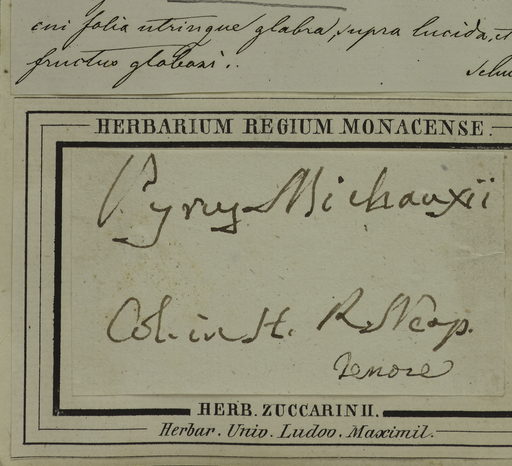 cui folia utrinque glabra, supra lucida, et
fructus globosi.
HERBARIUM REGIUM MONACENSE.
Pyrus Michauxii
Col. in H. R. Neap.
Tenore
HERB. ZUCCARINII.
Herbar. Univ. Ludov. Maximil.